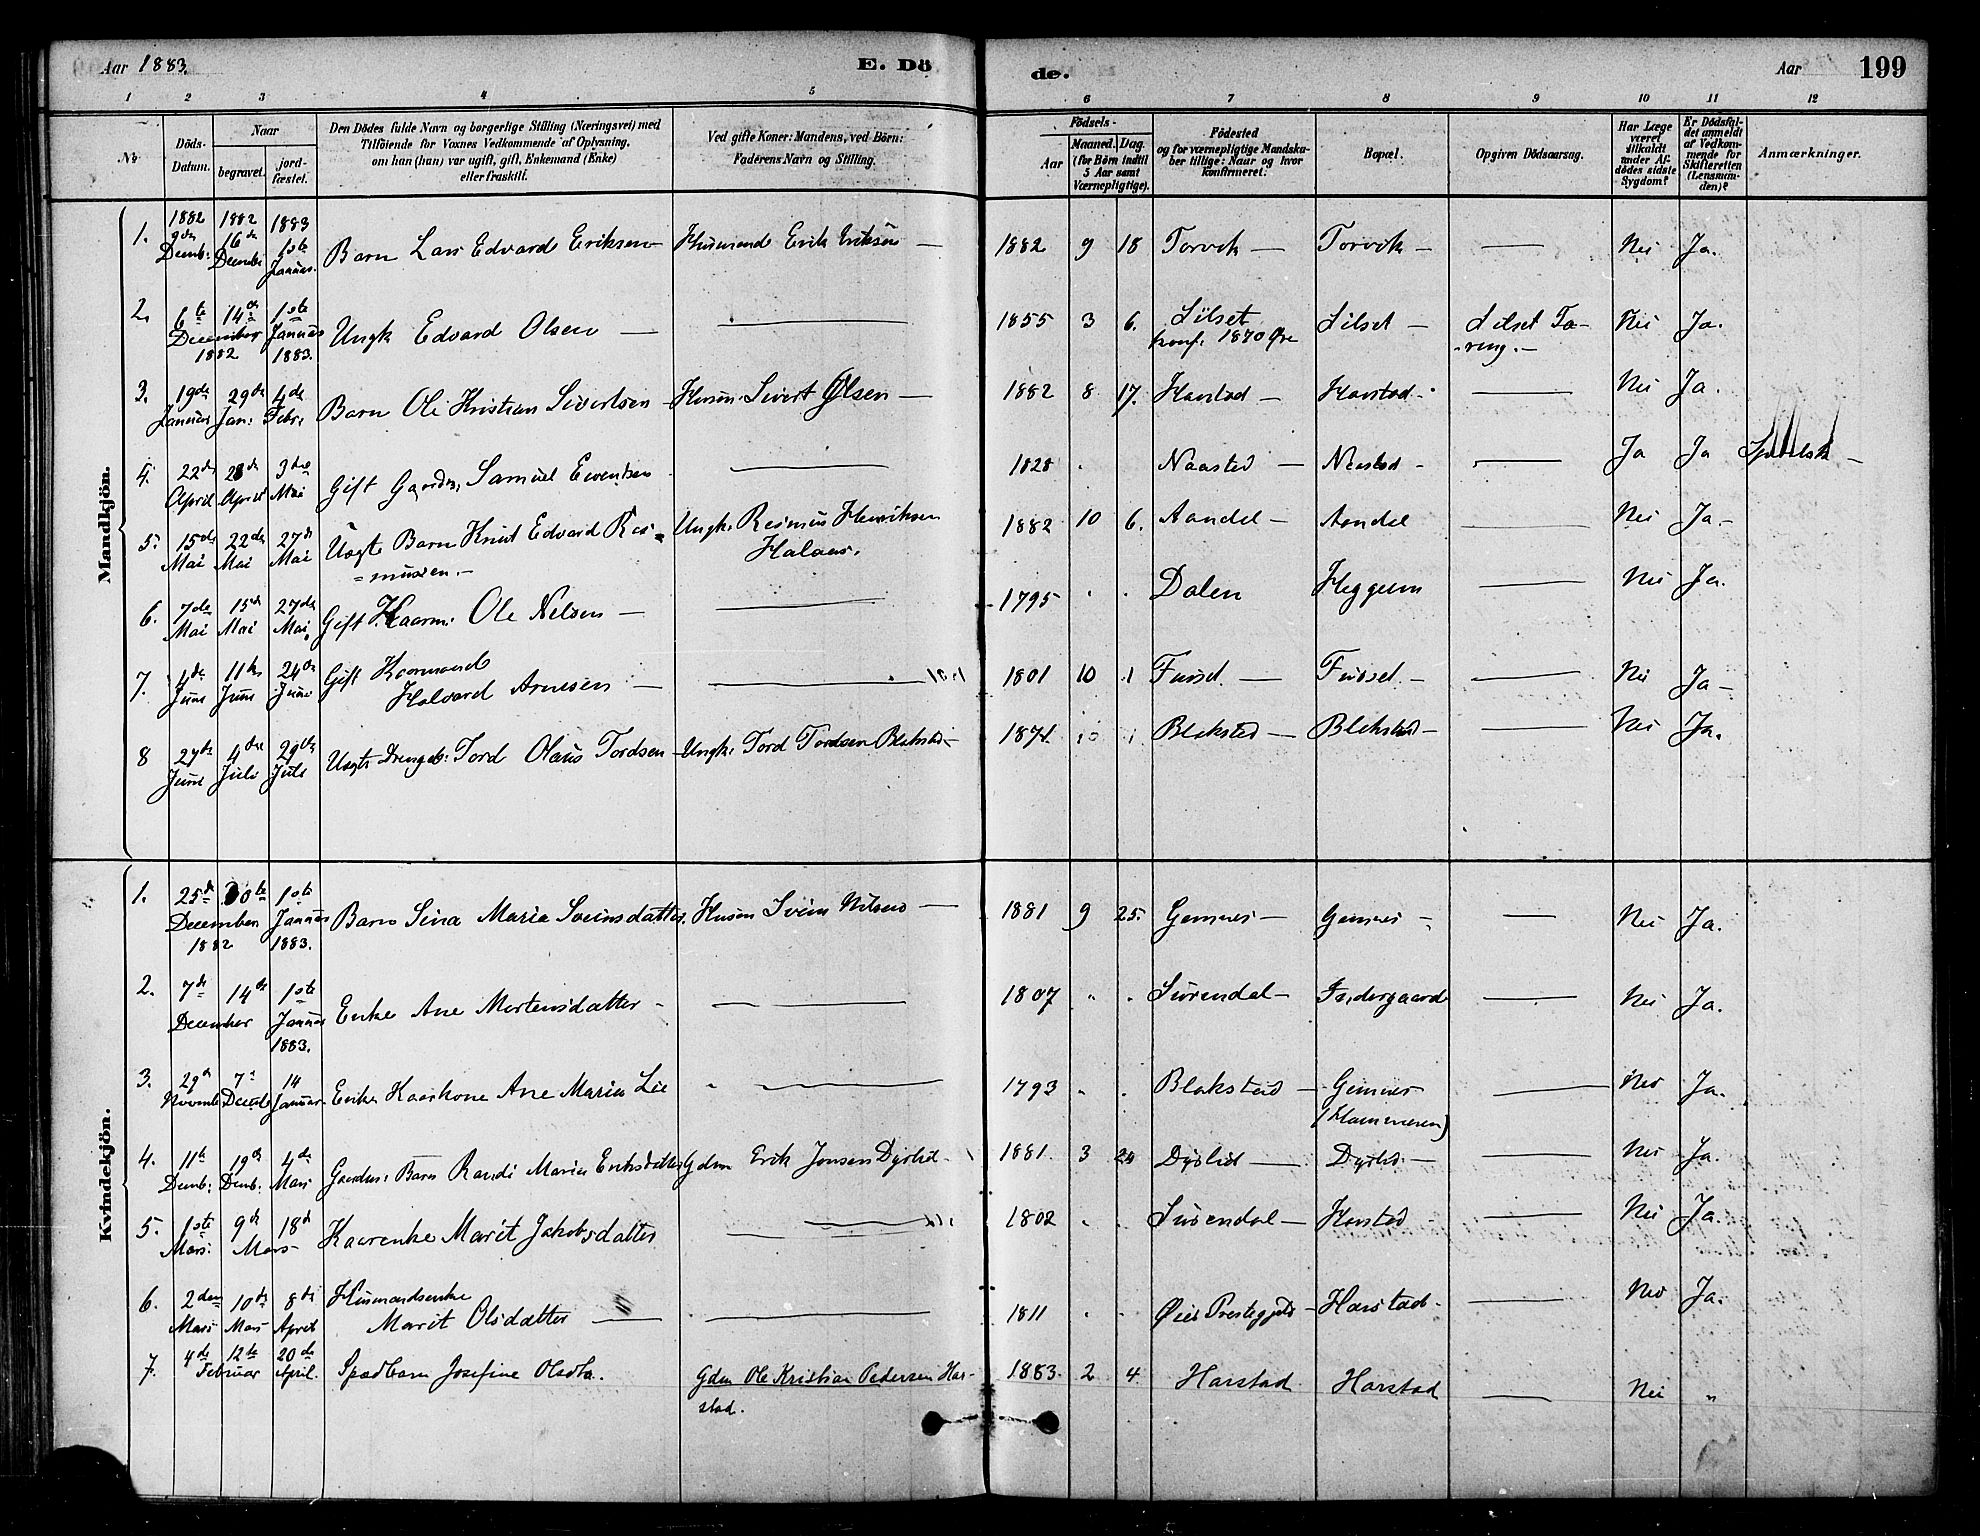 Aar 1883. E. Dö de. Aar 199
1 2 3 4 5 6 7 8 9 10 11 12
No Döds-Datum. Naar begravet. jord-fæstet. Den Dödes fulde Navn og borgerlige Stilling (Næringsvei) med Tilföiende for Voxnes Vedkommende af Oplysning, om han (hun) var ugift, gift, Enkemand (Enke) eller fraskilt. Ved gifte Koner: Mandens, ved Börn: Faderens Navn og Stilling. Födsels- Aar Maaned. Dag. (for Börn indtil 5 Aar samt Værnepligtige). Födested og for værnepligtige Mandskaber tillige: Naar og hvor konfirmeret. Bopæl. Opgiven Dödsaarsag. Har Læge været tilkaldt under Afdödes sidste Sygdom? Er Dödsfaldet anmeldt af Vedkommende for Skifteretten (Lensmanden)? Anmærkninger.
Mandkjön.
1. 1882 9de Decemb: 1882 16de Decemb: 1883 1ste Januar. Barn Lars Edvard Eriksen — Husmand Erik Eriksen — 1882 9 18 Torvik — Torvik — — Nei Ja.
2. 6te 14de December 1882 1ste Januar 1883. Ungk Edvard Olsen — — 1855 3 6. Silset konf. 1870 Øre Silset — Silset Tæ-
ring. — Nei Ja.
3. 19de Januar 29de Jan: 4de Febr. Barn Ole Kristian Sivertsen — Husm. Sivert Olsen — 1882 8 17. Harstad — Harstad — — Nei Ja.
4. 22de April 28de April 3die Mai Gift Gaardm. Samuel Evensen — 1828 . Naastad — Naastad — — Ja Ja Spedalsk —
5. 15de Mai 22de Mai 27de Mai Uægte Barn Knut Edvard Ras=
=mussen. — Ungk. Rasmus Henriksen
Halaas. 1882 10 6. Aandal — Aandal — Nei Ja —
6. 7de Mai 15de Mai 27de Mai Gift Kaarm: Ole Nelsen — — 1795 . . Dalen Heggem — Nei Ja.
7. 4de Juni 11te Juni 24de Juni Gift Kaarmand
Halvard Arnesen — — 1801 10 1 Furset — Furset — — Nei Ja —
8 27de Juni 4de Juli 29de Juli Uægte Drengeb: Tord Olaus Tordsen — Ungk: Tord Tordsen Blakstad — 1871 10 1 Blakstad — Blakstad — — Nei Ja.
Kvindekjön.
1. 25de 30te December 1882 1ste Januar 1883. Barn Sina Maria Sveinsdatter. Husm Svein Nilsen — 1881 9 25. Gemnes — Gemnes — — Nei Ja.
2. 7de 14de December 1ste Januar 1883. Enke Ane Mortensdatter — — 1807 . . Surendal — Indergaard — Nei Ja.
3. 29de Novemb 7de Decemb 14 Januar. Enke Kaarkone Ane Maria Lie — 1793 . . Blakstad — Gemnes
(Hammeren) — Nei Ja.
4. 11te Decemb: 19de Decemb: 4de Mars Gaardm: Barn Randi Maria Eriksdatter Gdm Erik Jonsen Dyrlid — 1881. 3 24 Dyrlid — Dyrlid — — Nei Ja.
5. 1ste Mars: 9de 18de Mars — Kaarenke Marit Jakobsdatter — 1802 . . Surendal — Harstad — Nei Ja.
6. 2den Mars 10de Mars 8de April Husmandsenke
Marit Olsdatter — — 1811 . . Øres Prestegjeld — Harstad. — Nei Ja.
7. 4de 12te Februar 20de April. Spædbarn Josefine Olsdtr. Gdm Ole Kristian Pedersen Har-
stad. 1883. 2 4 Harstad Harstad — Nei "